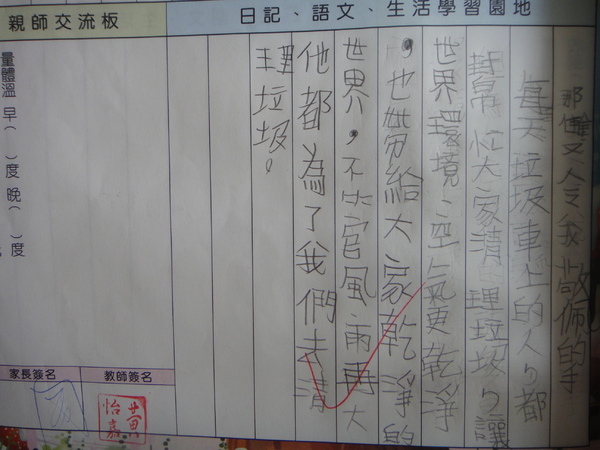 日記、語文、生活學習園地
那又令我敬佩的手
每天垃圾車上的人，都
幫忙大家清理垃圾，讓
世界環境、空氣更乾淨
，也帶給大家乾淨的
世界，不管風雨再大
他都為了我們去清
理垃圾。
親師交流板
量體溫 早( )度 晚( )度
教師簽名
家長簽名
黃怡嘉